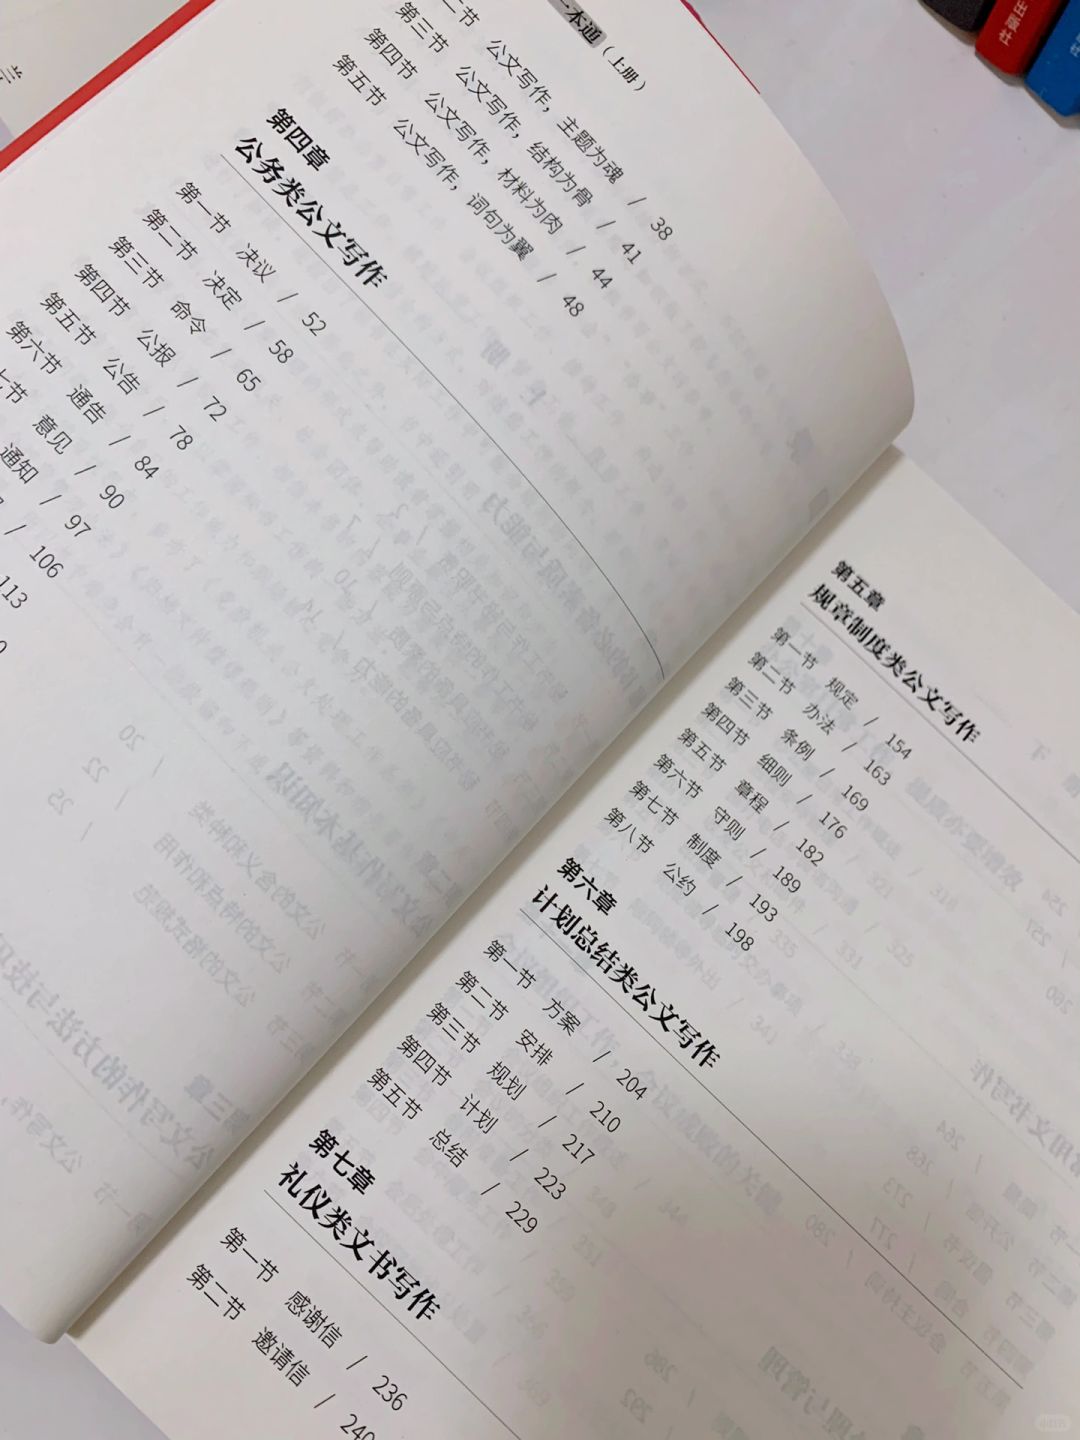 一本通（上册）
二节 公文写作，主题为魂 / 38
第三节 公文写作，结构为骨 / 41
第四节 公文写作，材料为肉 / 44
第五节 公文写作，词句为翼 / 48
第四章
公务类公文写作
第一节 决议 / 52
第二节 决定 / 58
第三节 命令 / 65
第四节 公报 / 72
第五节 公告 / 78
第六节 通告 / 84
七节 意见 / 90
通知 / 97
/ 106
113
第五章
规章制度类公文写作
第一节 规定 / 154
第二节 办法 / 163
第三节 条例 / 169
第四节 细则 / 176
第五节 章程 / 182
第六节 守则 / 189
第七节 制度 / 193
第八节 公约 / 198
第六章
计划总结类公文写作
第一节 方案 / 204
第二节 安排 / 210
第三节 规划 / 217
第四节 计划 / 223
第五节 总结 / 229
第七章
礼仪类文书写作
第一节 感谢信 / 236
第二节 邀请信 / 240
出版社